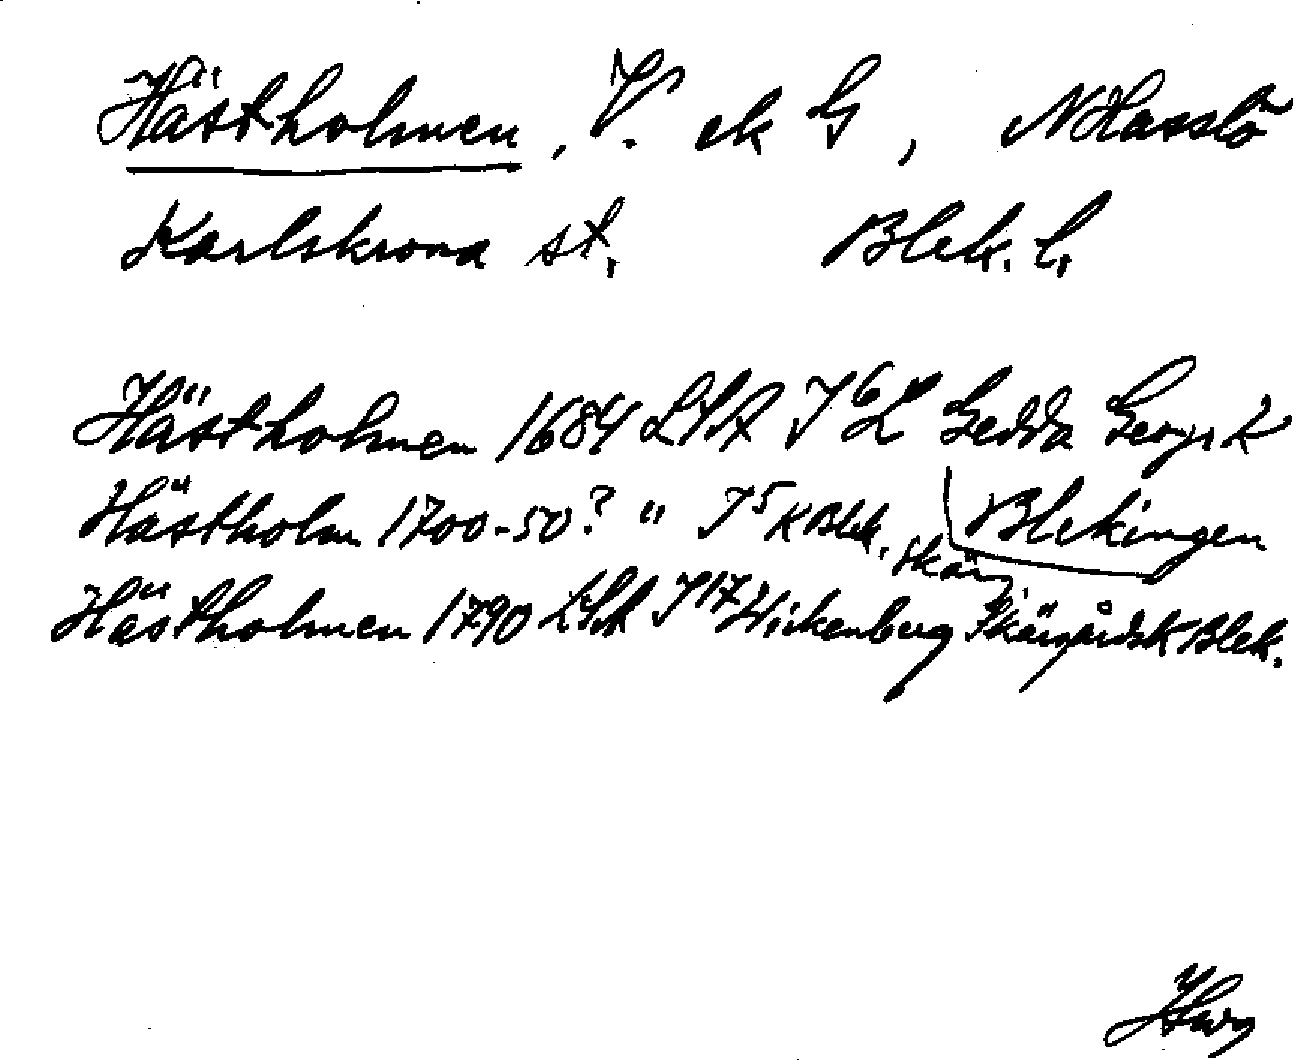 Hästholmen, V. ek G, N Hasslö
Karlskrona st. Blek. l.
Hästholmen 1684 LSA J⁶ L Gedda Geogr K
Hästholm 1700-50? " J⁵ K Blek. skär Blekingen
Hästholmen 1790 LSA J¹⁷ Wickenberg Skärgårdsk Blek.